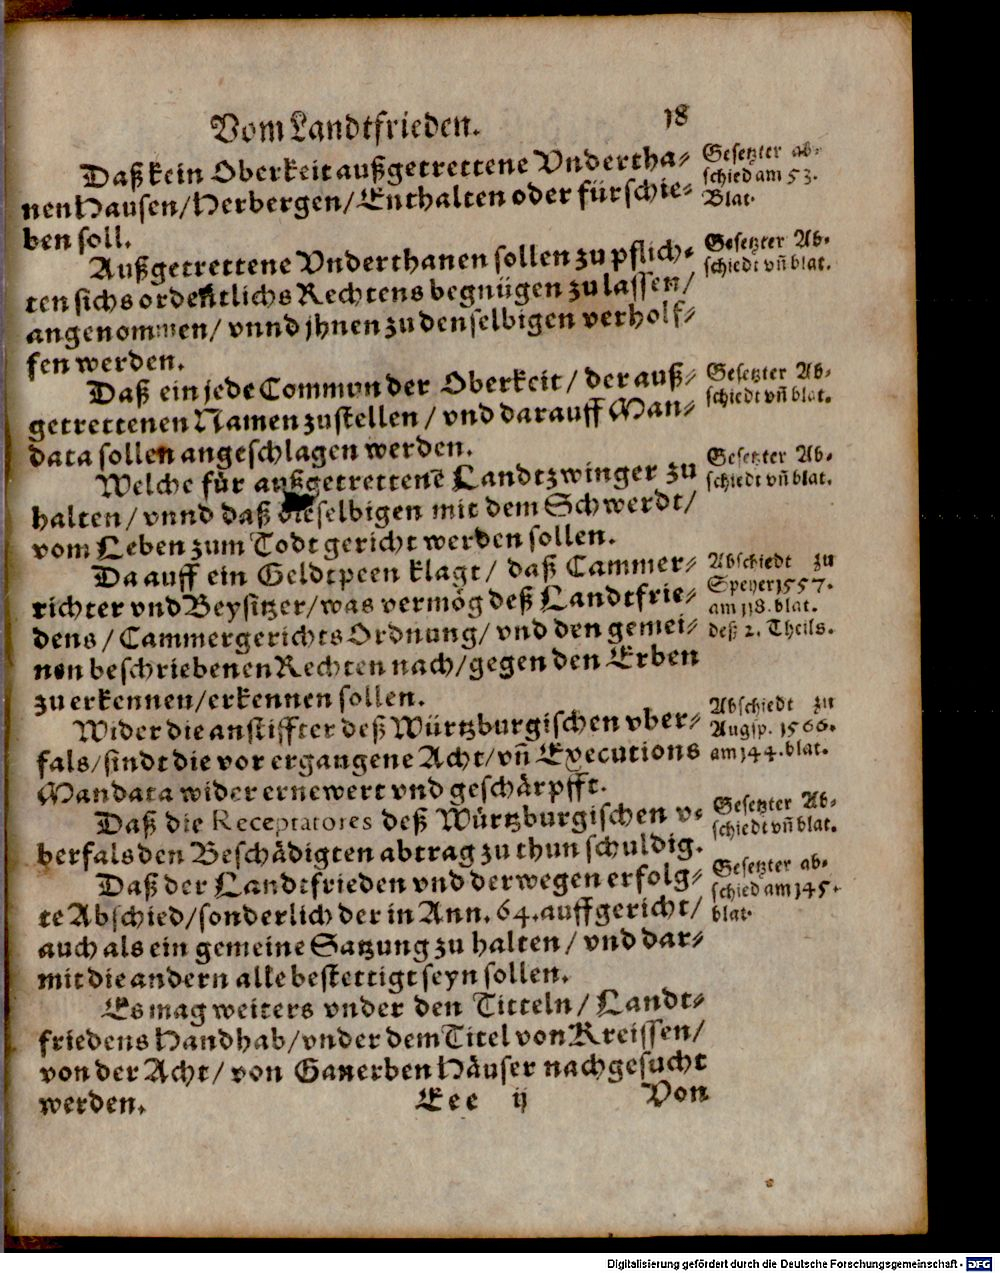 Vom Landtfrieden. 18
Daß kein Oberkeit außgetrettene Vndertha-
nen Hausen/Herbergen/Enthalten oder fürschie-
ben soll.
Gesetzter ab-
schied am 53.
Blat.
Außgetrettene Vnderthanen sollen zu pflich-
ten sichs ordentlichs Rechtens begnügen zu lassen/
angenommen/ vnnd jhnen zu denselbigen verholf-
fen werden.
Gesetzter Ab-
schiedt vñ blat.
Daß ein jede Commun der Oberkeit/ der auß-
getrettenen Namen zustellen/ vnd darauff Man-
data sollen angeschlagen werden.
Gesetzter Ab-
schiedt vñ blat.
Welche für außgetrettene Landtzwinger zu
halten/ vnnd daß dieselbigen mit dem Schwerdt/
vom Leben zum Todt gericht werden sollen.
Gesetzter Ab-
schiedt vñ blat.
Da auff ein Geldtpeen klagt/ daß Cammer-
richter vnd Beysitzer/was vermög deß Landtfrie-
dens/ Cammergerichts Ordnung/ vnd den gemei-
nen beschriebenen Rechten nach/gegen den Erben
zu erkennen/erkennen sollen.
Abschiedt zu
Speyer 1557.
am 118. blat.
deß 2. Theils.
Wider die anstiffter deß Würtzburgischen vber-
fals/sindt die vor ergangene Acht/vñ Executions
Mandata wider ernewert vnd geschärpfft.
Abschiedt zu
Augsp. 1566.
am 144. blat.
Daß die Receptatores deß Würtzburgischen v-
berfals den Beschädigten abtrag zu thun schuldig.
Gesetzter Ab-
schiedt vñ blat.
Daß der Landtfrieden vnd derwegen erfolg-
te Abschied/sonderlich der in Ann. 64. auffgericht/
auch als ein gemeine Satzung zu halten/ vnd dar-
mit die andern alle bestettigt seyn sollen.
Gesetzter ab-
schied am 145.
blat.
Es mag weiters vnder den Titteln/ Landt-
friedens Handhab/vnder dem Titel von Kreissen/
von der Acht/ von Ganerben Häuser nachgesucht
werden.
Eee ij Von
Digitalisierung gefördert durch die Deutsche Forschungsgemeinschaft - DFG